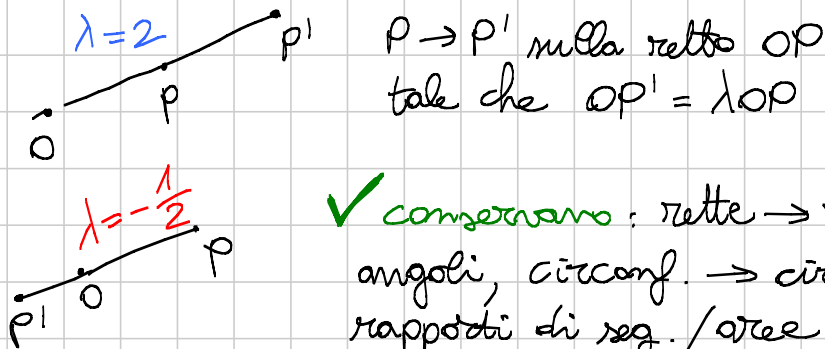 λ = 2
P'
P
O
P → P' sulla retta OP
tale che OP' = λOP
λ = -1/2
P
O
P'
✓ conservano : rette →
angoli, circonf. → cir
rapporti di seg. / aree